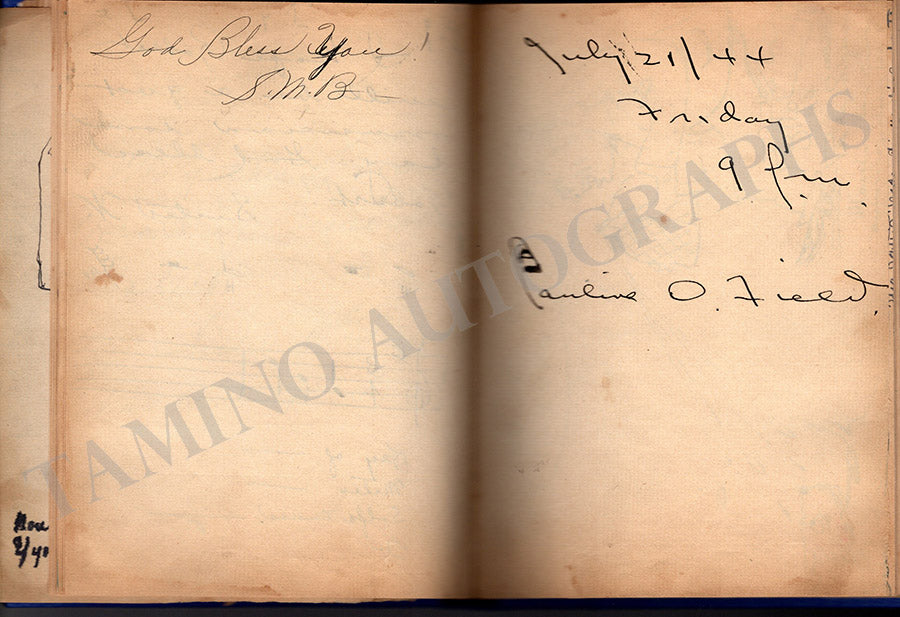 God Bless You!
S.M.B-
July 21/44
Friday
9 p.m.
Pauline O. Field.
TAMINO AUTOGRAPHS